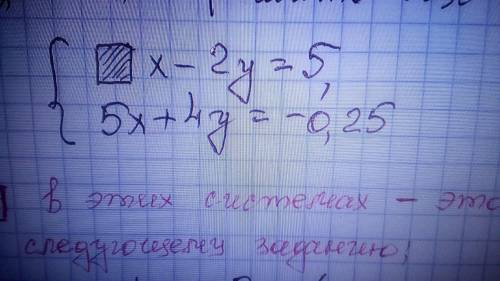 ▨ x - 2y = 5,
5x + 4y = -0,25
в этих системах - это
следующему заданию: